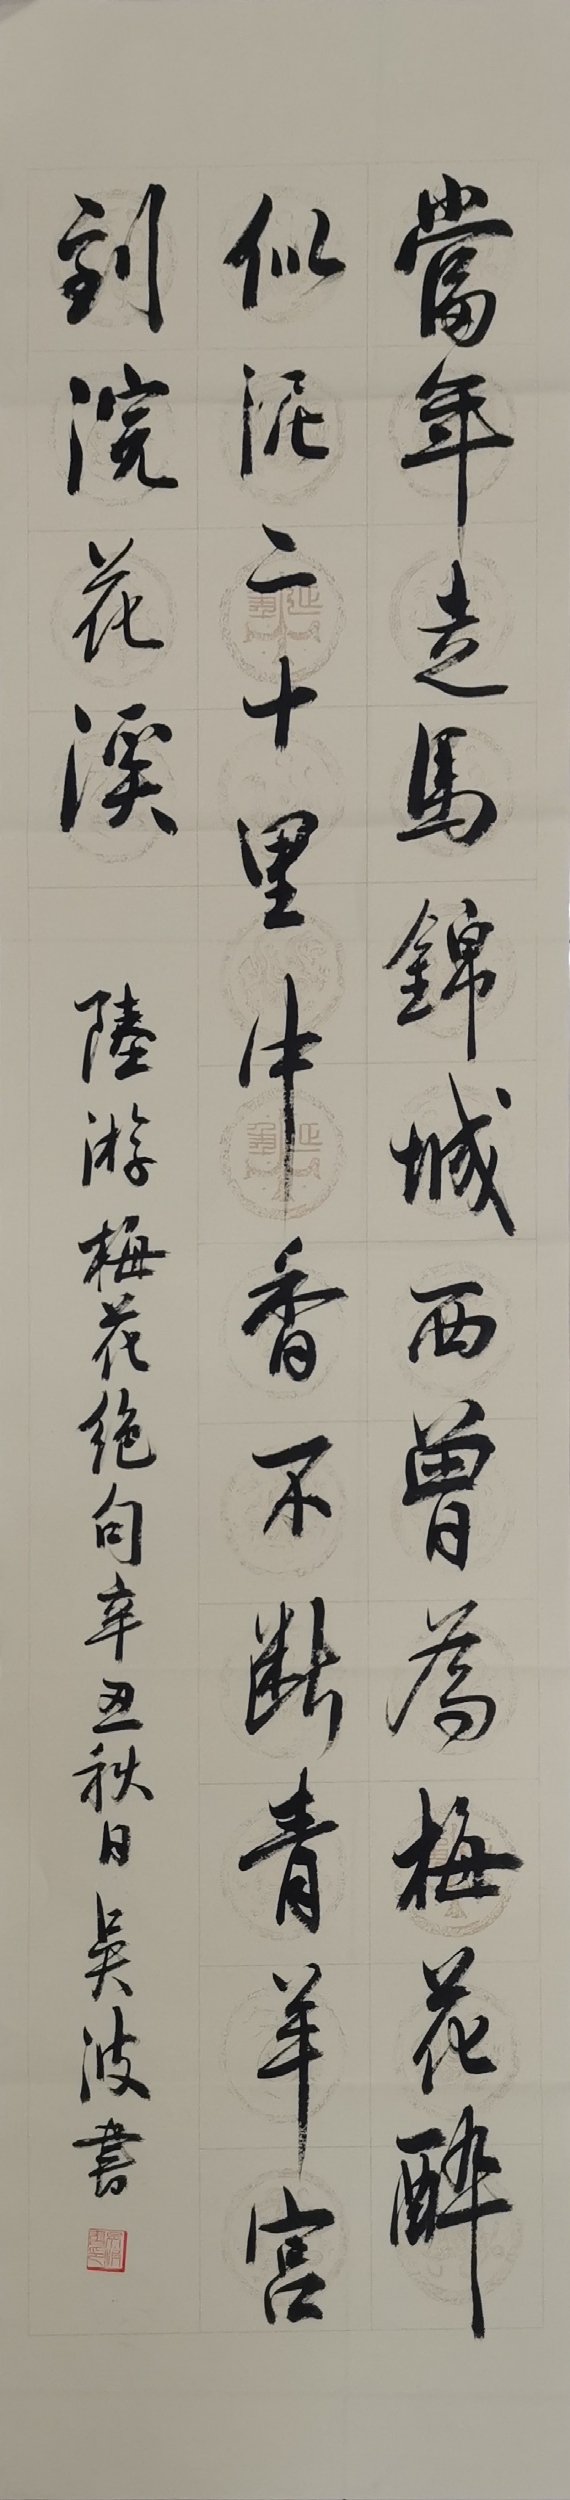 當年走馬錦城西曾為梅花醉
似泥二十里中香不斷青羊宮
到浣花溪
陸游梅花絶句辛丑秋日吳波書